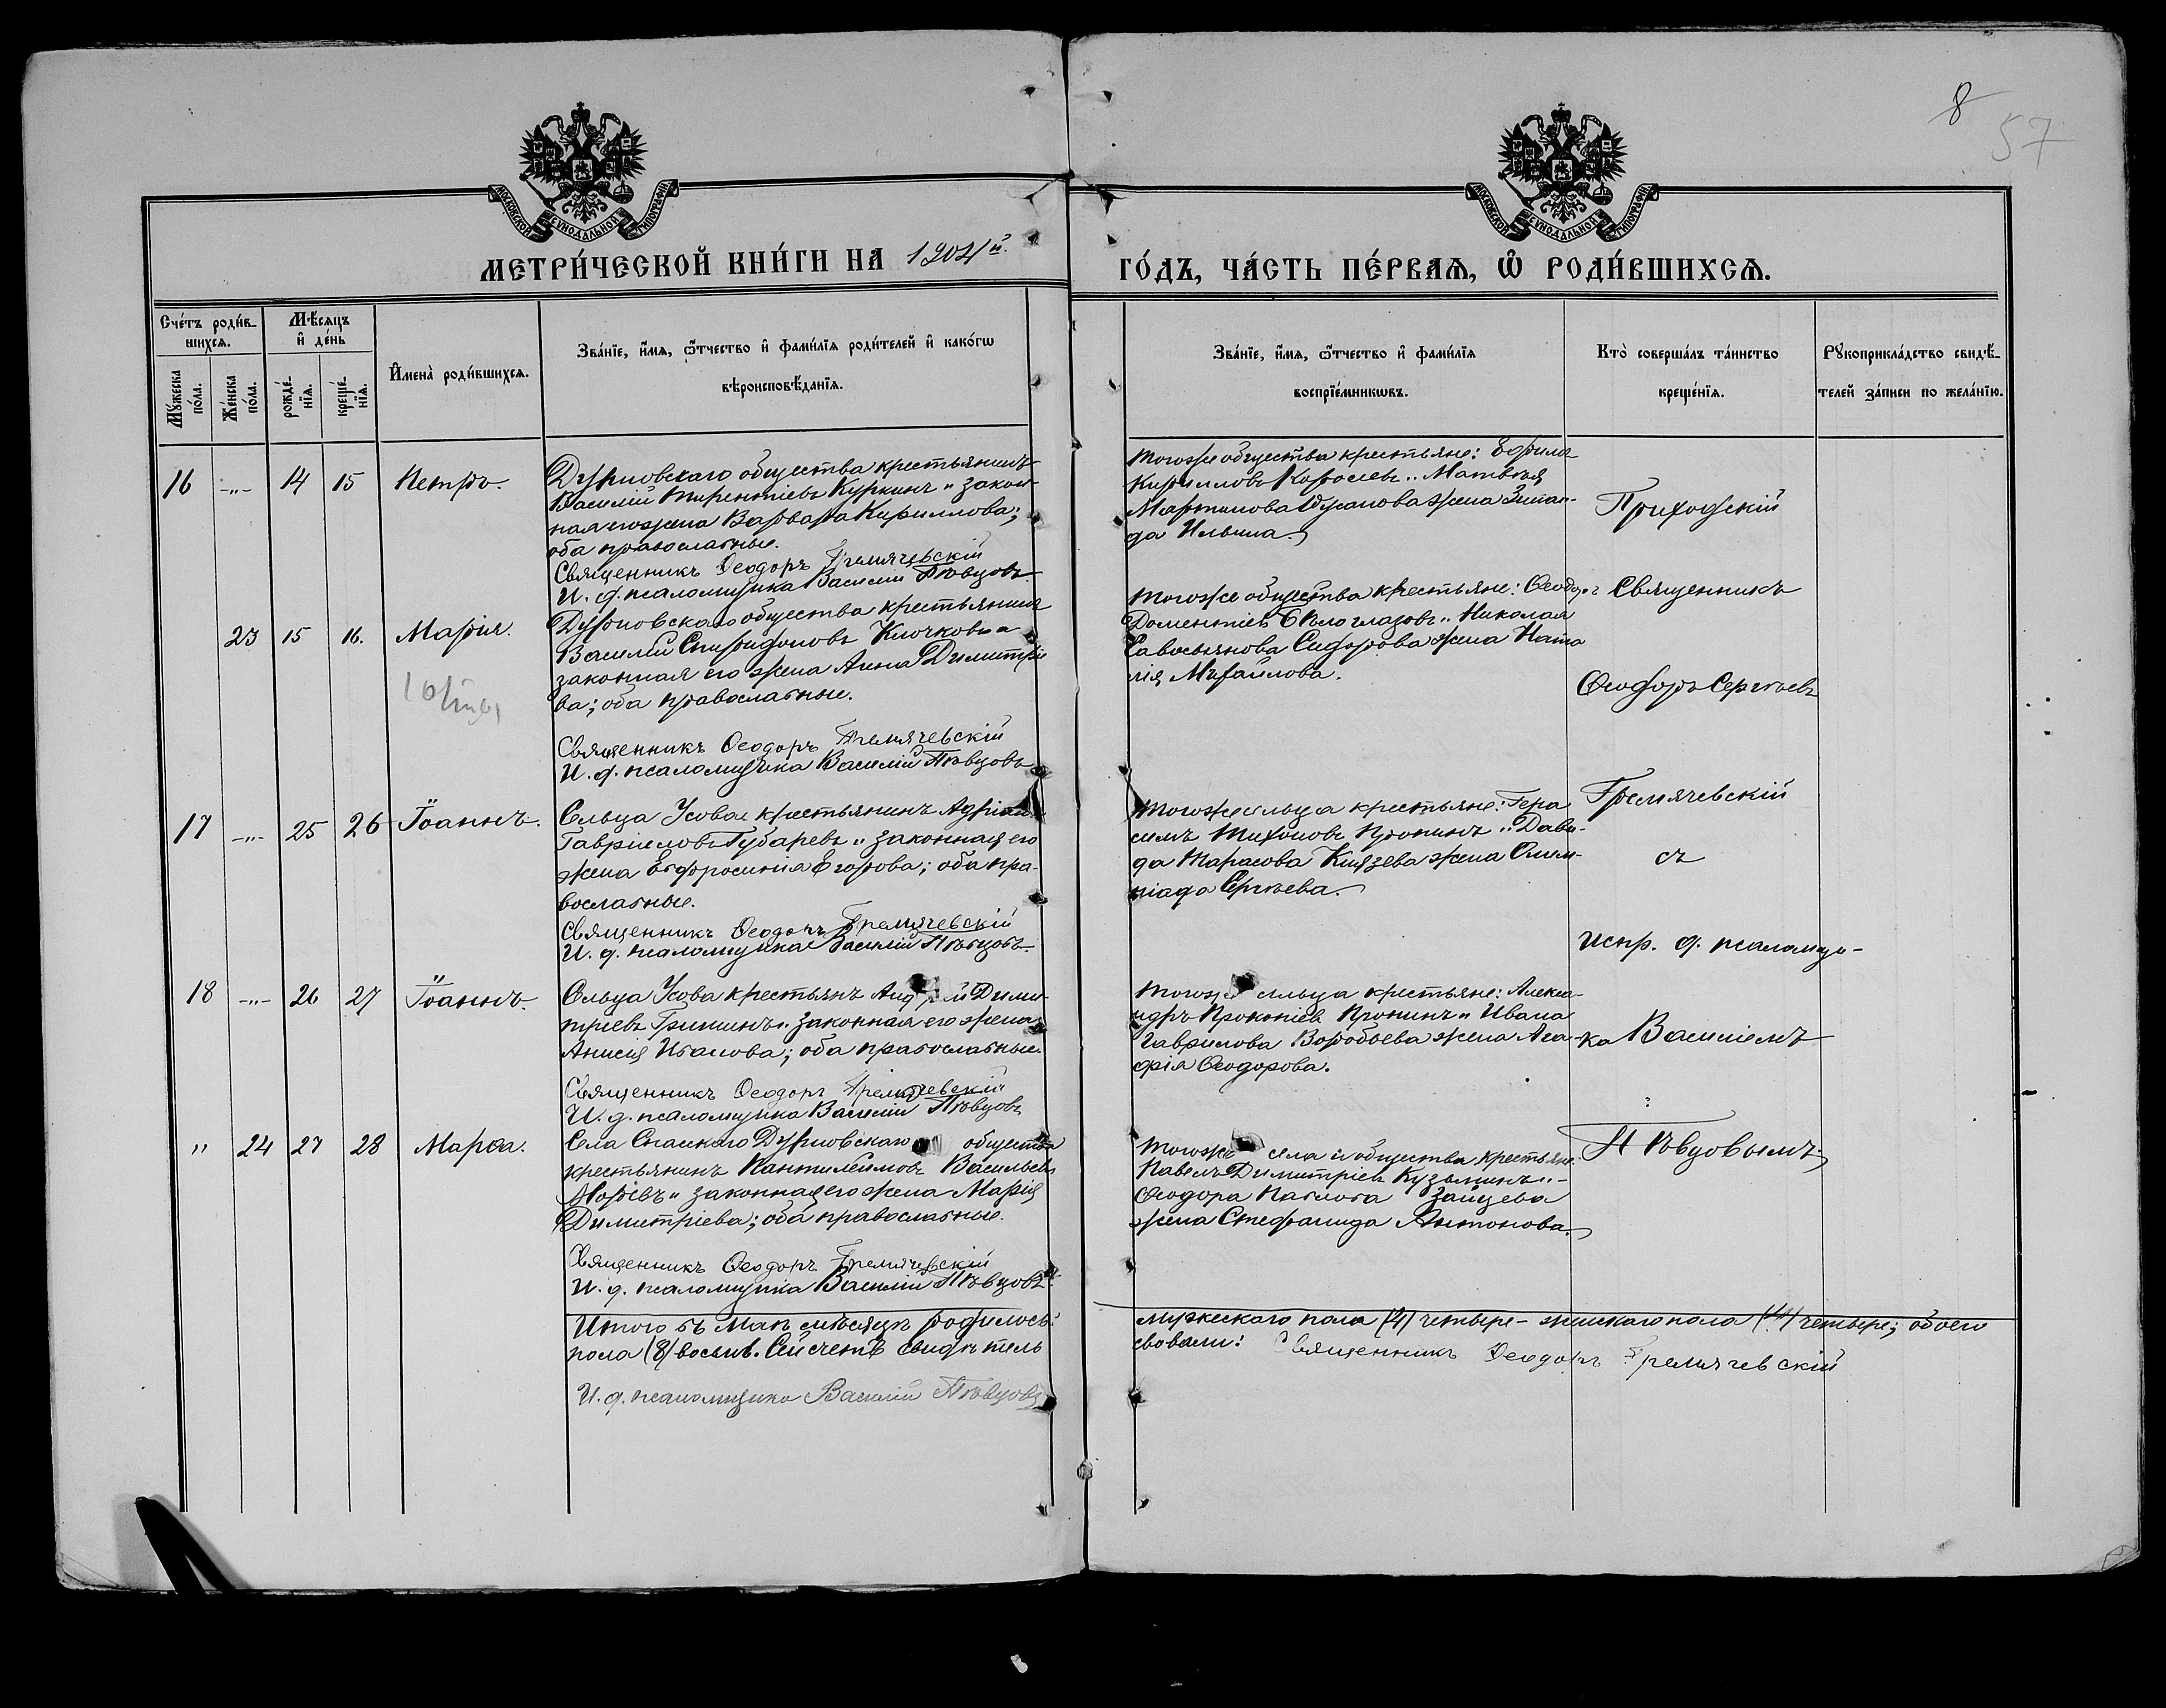 8
57
МОСКОВСКОЙ СѴНОДАЛЬНОЙ ТИПОГРАФІИ
МОСКОВСКОЙ СѴНОДАЛЬНОЙ ТИПОГРАФІИ
МЕТРИ́ЧЕСКОЙ КНИ́ГИ НА 1904й.
ГО́ДЪ, ЧА́СТЬ ПЕ́РВАѦ, Ѽ РОДИ́ВШИХСѦ.
Сче́тъ роди́в-
шихсѧ.
Мꙋ́жеска по́ла.
Же́нска по́ла.
Мѣ́сѧцъ
и҆ де́нь
рожде́-
нїѧ.
креще́-
нїѧ.
И҆мена̀ роди́вшихсѧ.
Зва́нїе, и҆́мѧ, ѻ҆́тчество и҆ фами́лїѧ роди́телей и҆ како́гѡ
вѣроисповѣ́данїѧ.
Зва́нїе, и҆́мѧ, ѻ҆́тчество и҆ фами́лїѧ
воспрїе́мникѡвъ.
Кто̀ соверша́лъ та́инство
креще́нїѧ.
Рꙋкоприкла́дство свидѣ́-
телей за́писи по жела́нїю.
16 -"- 14 15 Петръ.
Дурновскаго общества крестьянинъ
Василій Терентіевъ Куркинъ и закон-
ная его жена Варвара Кириллова;
оба православные.
Священникъ Ѳеодоръ Гремячевскій
И. д. псаломщика Василій Пѣвцовъ
тогоже общества крестьяне:
Кирилловъ Королевъ и Матвѣя
Мартинова жена Зинаи-
да Ильина.
23 15 16. Марія.
Дурновскаго общества крестьянинъ
Василій Спиридоновъ Клочковъ и
законная его жена Анна Димитріе
ва; оба православные.
Священникъ Ѳеодоръ Гремячевскій
И. д. псаломщика Василій Пѣвцовъ
тогоже общества крестьяне: Ѳеодоръ
Дометіев Бѣлоглазовъ и Николая
Савостьянова Сидорова жена Ната
лія Михайлова.
17 -"- 25 26 Іоаннъ.
Сельца Усова крестьянинъ Адріан
Гавріиловъ Губаревъ и законная его
жена Евфросинія Егорова; оба пра-
вославные.
Священникъ Ѳеодоръ Гремячевскій
И. д. псаломщика Василій Пѣвцовъ.
тогоже сельца крестьяне: Гера
симъ Тихоновъ Пронинъ и Дави-
да Тарасова Князева жена Олим-
піада Сергѣева.
18 -"- 26 27 Іоаннъ.
Сельца Усова крестьянъ Андрей Дими-
тріевъ Гришинъ и законная его жена
Анисія Иванова; оба православные.
Священникъ Ѳеодоръ Гремячевскій
И. д. псаломщика Василій Пѣвцовъ
тогоже сельца крестьяне: Алекса-
ндръ Прокопіев Пронинъ и Ивана
Гаврилова Воробьева жена Ага-
фія Ѳеодорова.
" 24 27 28 Марѳа.
Села Спасскаго Дурновскаго общества
крестьянинъ Пантилеимовъ Васильевъ
и законная его жена Марія
Димитріева; оба православные.
Священникъ Ѳеодоръ Гремячевскій
И. д. псаломщика Василій Пѣвцовъ
тогоже села и общества крестьяне:
Павелъ Димитріевъ Кузьминъ и -
Ѳеодора Павлова Зайцева
жена Стефанида Антонова.
Приходскій
Священникъ
Ѳеодоръ Сергѣевъ
Гремячевскій
съ
испр. д. псаломщи-
ка Василіемъ
Пѣвцовымъ.
Итого въ Маѣ мѣсяцѣ родилось:
мужескаго пола (4) четыре - женскаго пола (4) четыре; обоего
пола (8) восьмь. Сей счетъ свидѣтель
ствовали: Священникъ Ѳеодоръ Гремячевскій
И. д. псаломщика Василій Пѣвцовъ